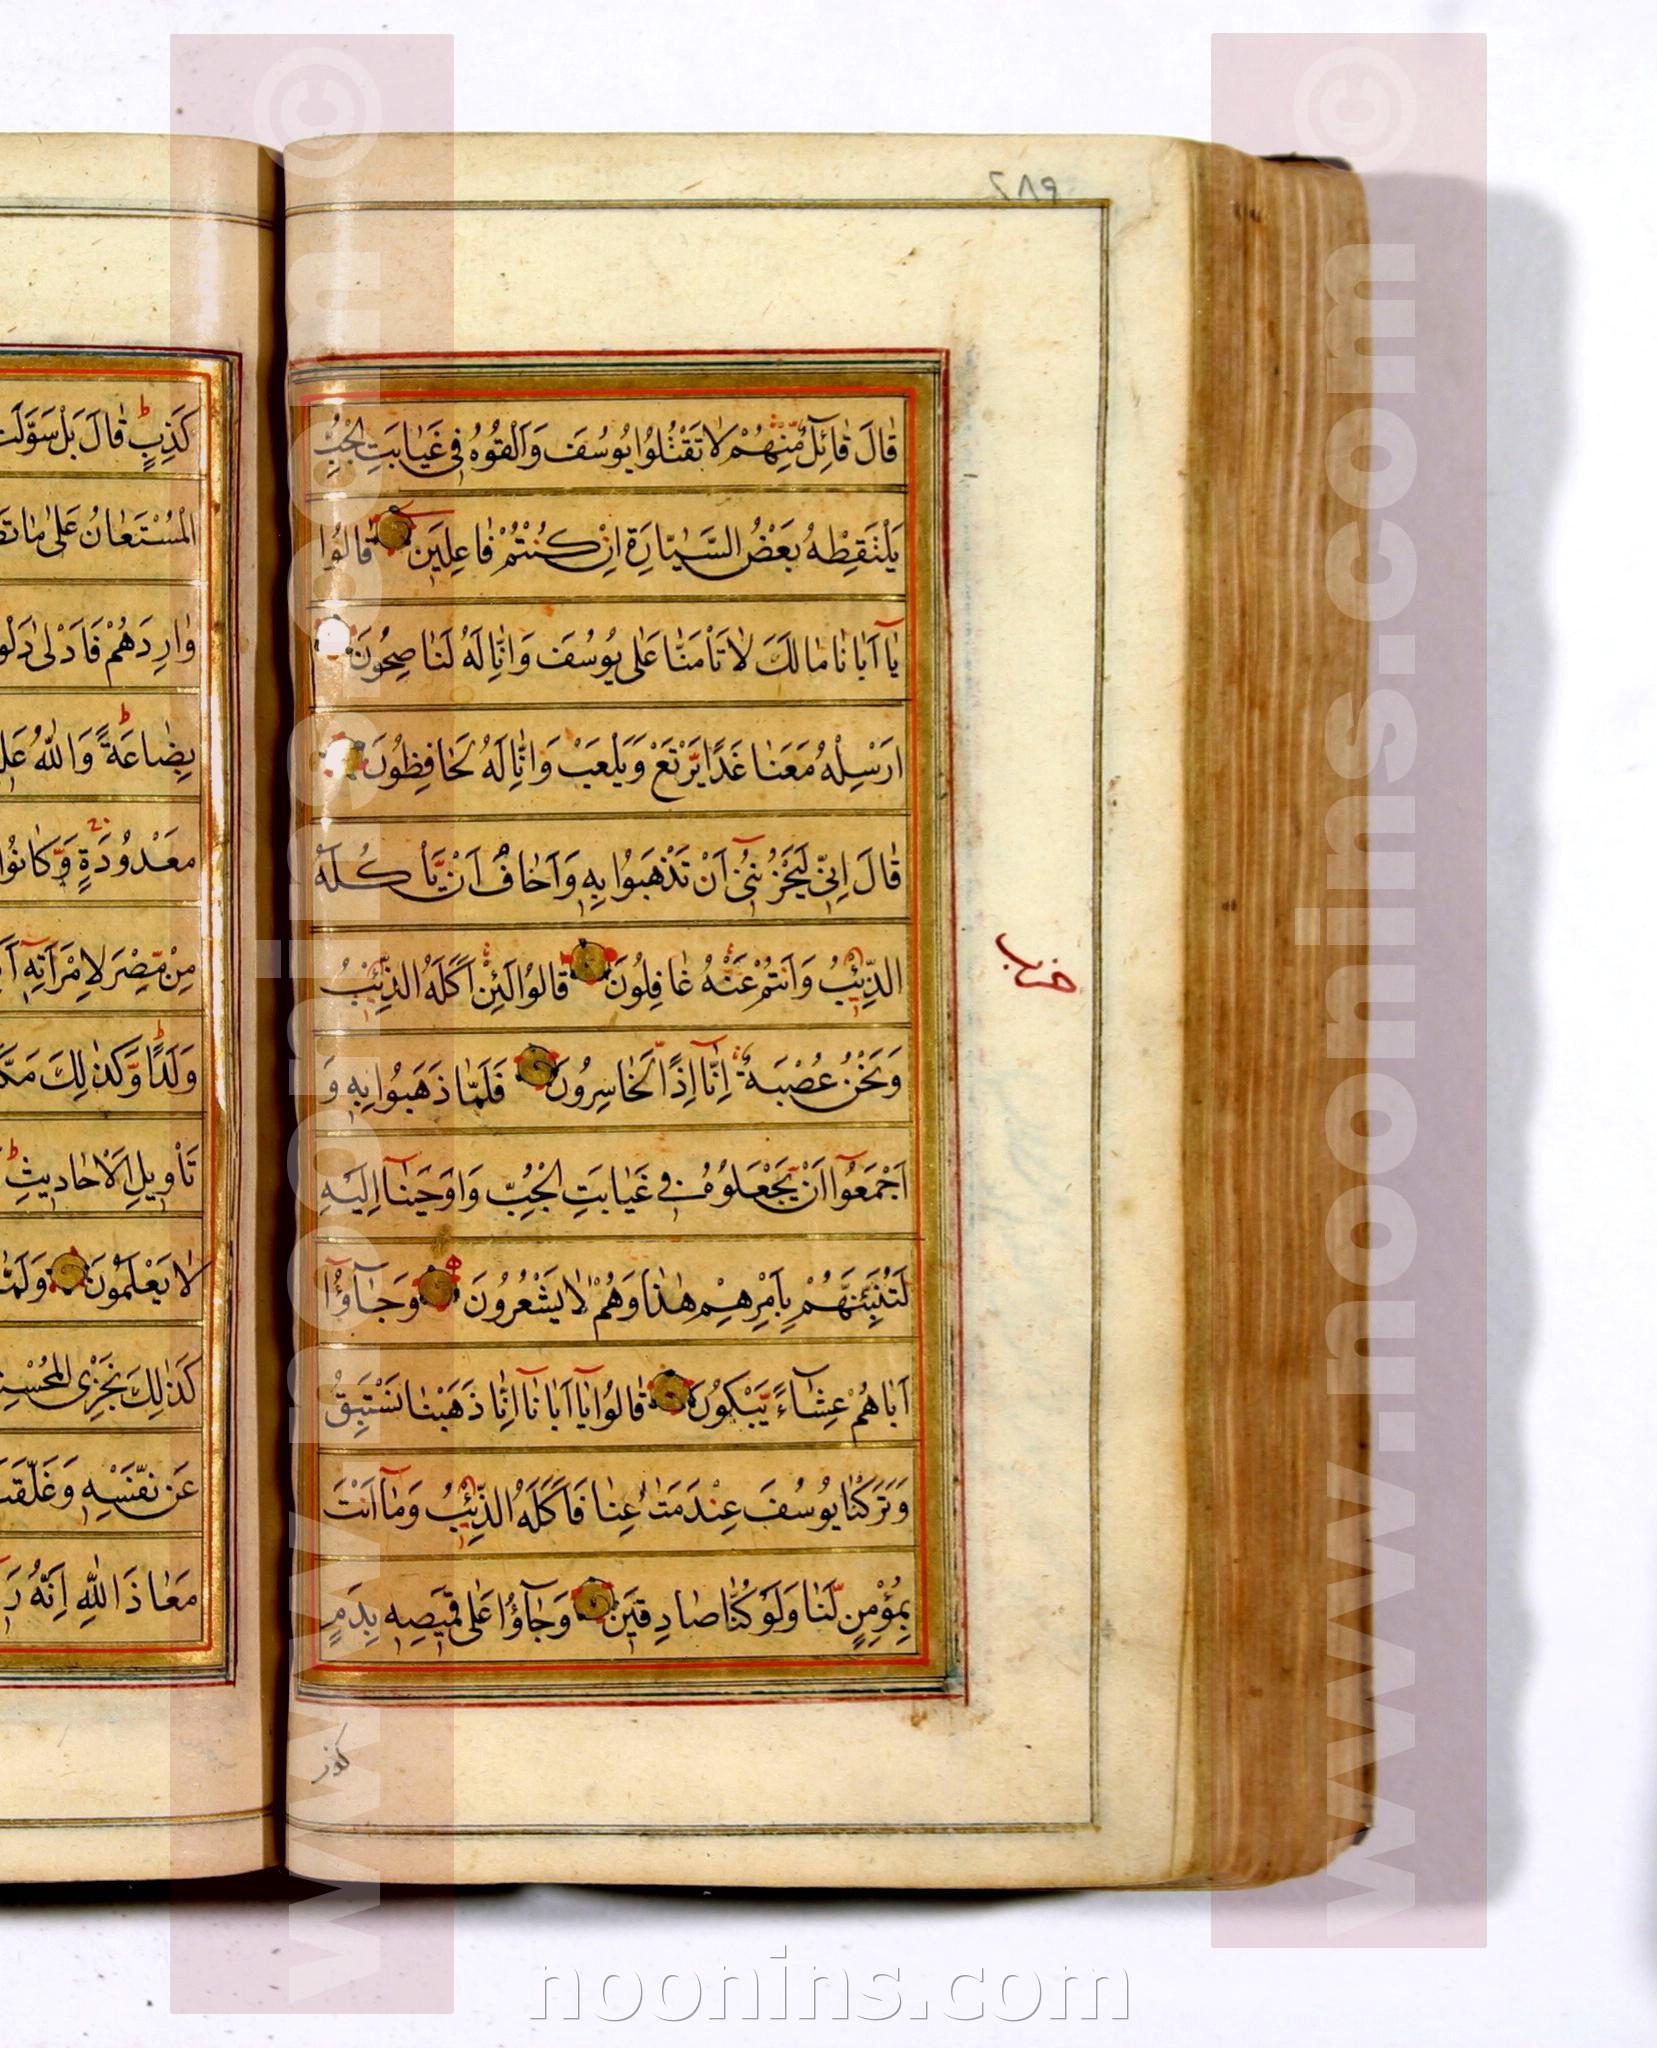 ۲۸۹
قٰالَ قٰآئِلٌ مِّنْهُمْ لٰا تَقْتُلُوا يُوسُفَ وَاَلْقُوهُ فِى غَيٰابَتِ الْجُبِّ
يَلْتَقِطْهُ بَعْضُ السَّيّٰارَةِ اِنْ كُنْتُمْ فٰاعِلِينَ قٰالُوا
يٰآ اَبٰانٰا مٰا لَكَ لٰا تَأْمَنّٰا عَلٰى يُوسُفَ وَاِنّٰا لَهُ لَنٰاصِحُونَ
اَرْسِلْهُ مَعَنٰا غَدًا يَّرْتَعْ وَيَلْعَبْ وَاِنّٰا لَهُ لَحٰافِظُونَ
قٰالَ اِنِّى لَيَحْزُنُنِىٓ اَنْ تَذْهَبُوا بِهِ وَاَخٰافُ اَنْ يَّأْكُلَهُ
الذِّئْبُ وَاَنْتُمْ عَنْهُ غٰافِلُونَ قٰالُوا لَئِنْ اَكَلَهُ الذِّئْبُ
وَنَحْنُ عُصْبَةٌ اِنّٰآ اِذًا لَّخٰاسِرُونَ فَلَمّٰا ذَهَبُوا بِهِ وَ
اَجْمَعُوٓا اَنْ يَّجْعَلُوهُ فِى غَيٰابَتِ الْجُبِّ وَاَوْحَيْنٰآ اِلَيْهِ
لَتُنَبِّئَنَّهُمْ بِاَمْرِهِمْ هٰذٰا وَهُمْ لٰا يَشْعُرُونَ وَجٰآؤُٓا
اَبٰاهُمْ عِشٰآءً يَّبْكُونَ قٰالُوا يٰآ اَبٰانٰآ اِنّٰا ذَهَبْنٰا نَسْتَبِقُ
وَتَرَكْنٰا يُوسُفَ عِنْدَ مَتٰاعِنٰا فَاَكَلَهُ الذِّئْبُ وَمٰآ اَنْتَ
بِمُؤْمِنٍ لَّنٰا وَلَوْ كُنّٰا صٰادِقِينَ وَجٰآؤُا عَلٰى قَمِيصِهِ بِدَمٍ
كَذِبٍ قٰالَ بَلْ سَوَّلَتْ
الْمُسْتَعٰانُ عَلٰى مٰا
وٰارِدَهُمْ فَاَدْلٰى دَلْوَ
بِضٰاعَةً وَاللّٰهُ
مَعْدُودَةٍ وَّكٰانُوا
مِنْ مِّصْرَ لِامْرَاَتِهِٓ
وَلَدًا وَّكَذٰلِكَ
تَأْوِيلِ الْاَحٰادِيثِ
لٰا يَعْلَمُونَ وَلَمّٰا
كَذٰلِكَ نَجْزِى
عَنْ نَّفْسِهِ وَغَلَّقَتِ
مَعٰاذَ اللّٰهِ اِنَّهُ
www.noonins.com ©
www.noonins.com ©
noonins.com